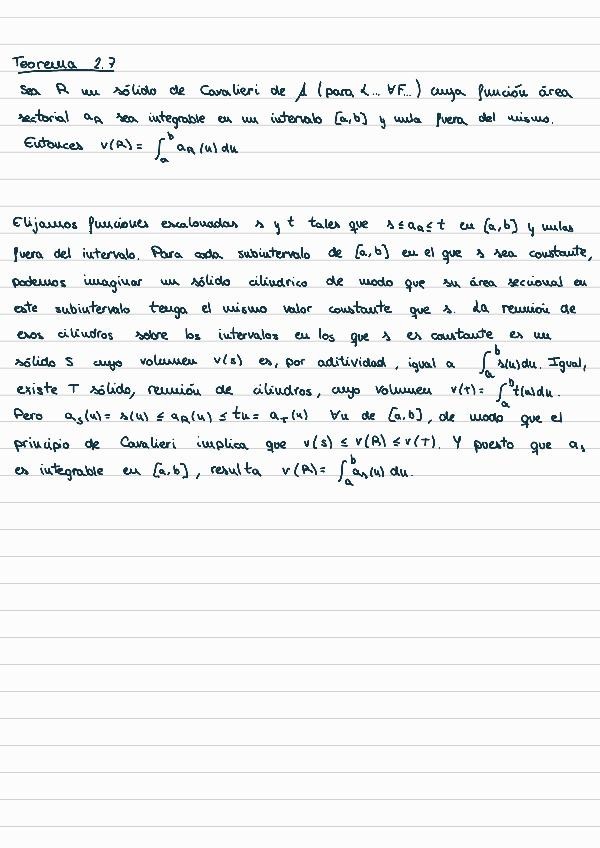 Teorema 2.7
Sea R un sólido de Cavalieri de A (para L... ∀F...) cuya función área
sectorial a_R sea integrable en un intervalo [a,b] y nula fuera del mismo.
Entonces v(R) = ∫_a^b a_R(u) du
Elijamos funciones escalonadas s y t tales que s ≤ a_R ≤ t en [a,b] y nulas
fuera del intervalo. Para cada subintervalo de [a,b] en el que s sea constante,
podemos imaginar un sólido cilíndrico de modo que su área seccional en
este subintervalo tenga el mismo valor constante que s. La reunión de
esos cilindros sobre los intervalos en los que s es constante es un
sólido S cuyo volumen v(s) es, por aditividad, igual a ∫_a^b s(u)du. Igual,
existe T sólido, reunión de cilindros, cuyo volumen v(t) = ∫_a^b t(u)du.
Pero a_S(u) = s(u) ≤ a_R(u) ≤ tu = a_T(u) ∀u de [a,b], de modo que el
principio de Cavalieri implica que v(S) ≤ v(R) ≤ v(T). Y puesto que a_s
es integrable en [a,b], resulta v(R) = ∫_a^b a_s(u) du.